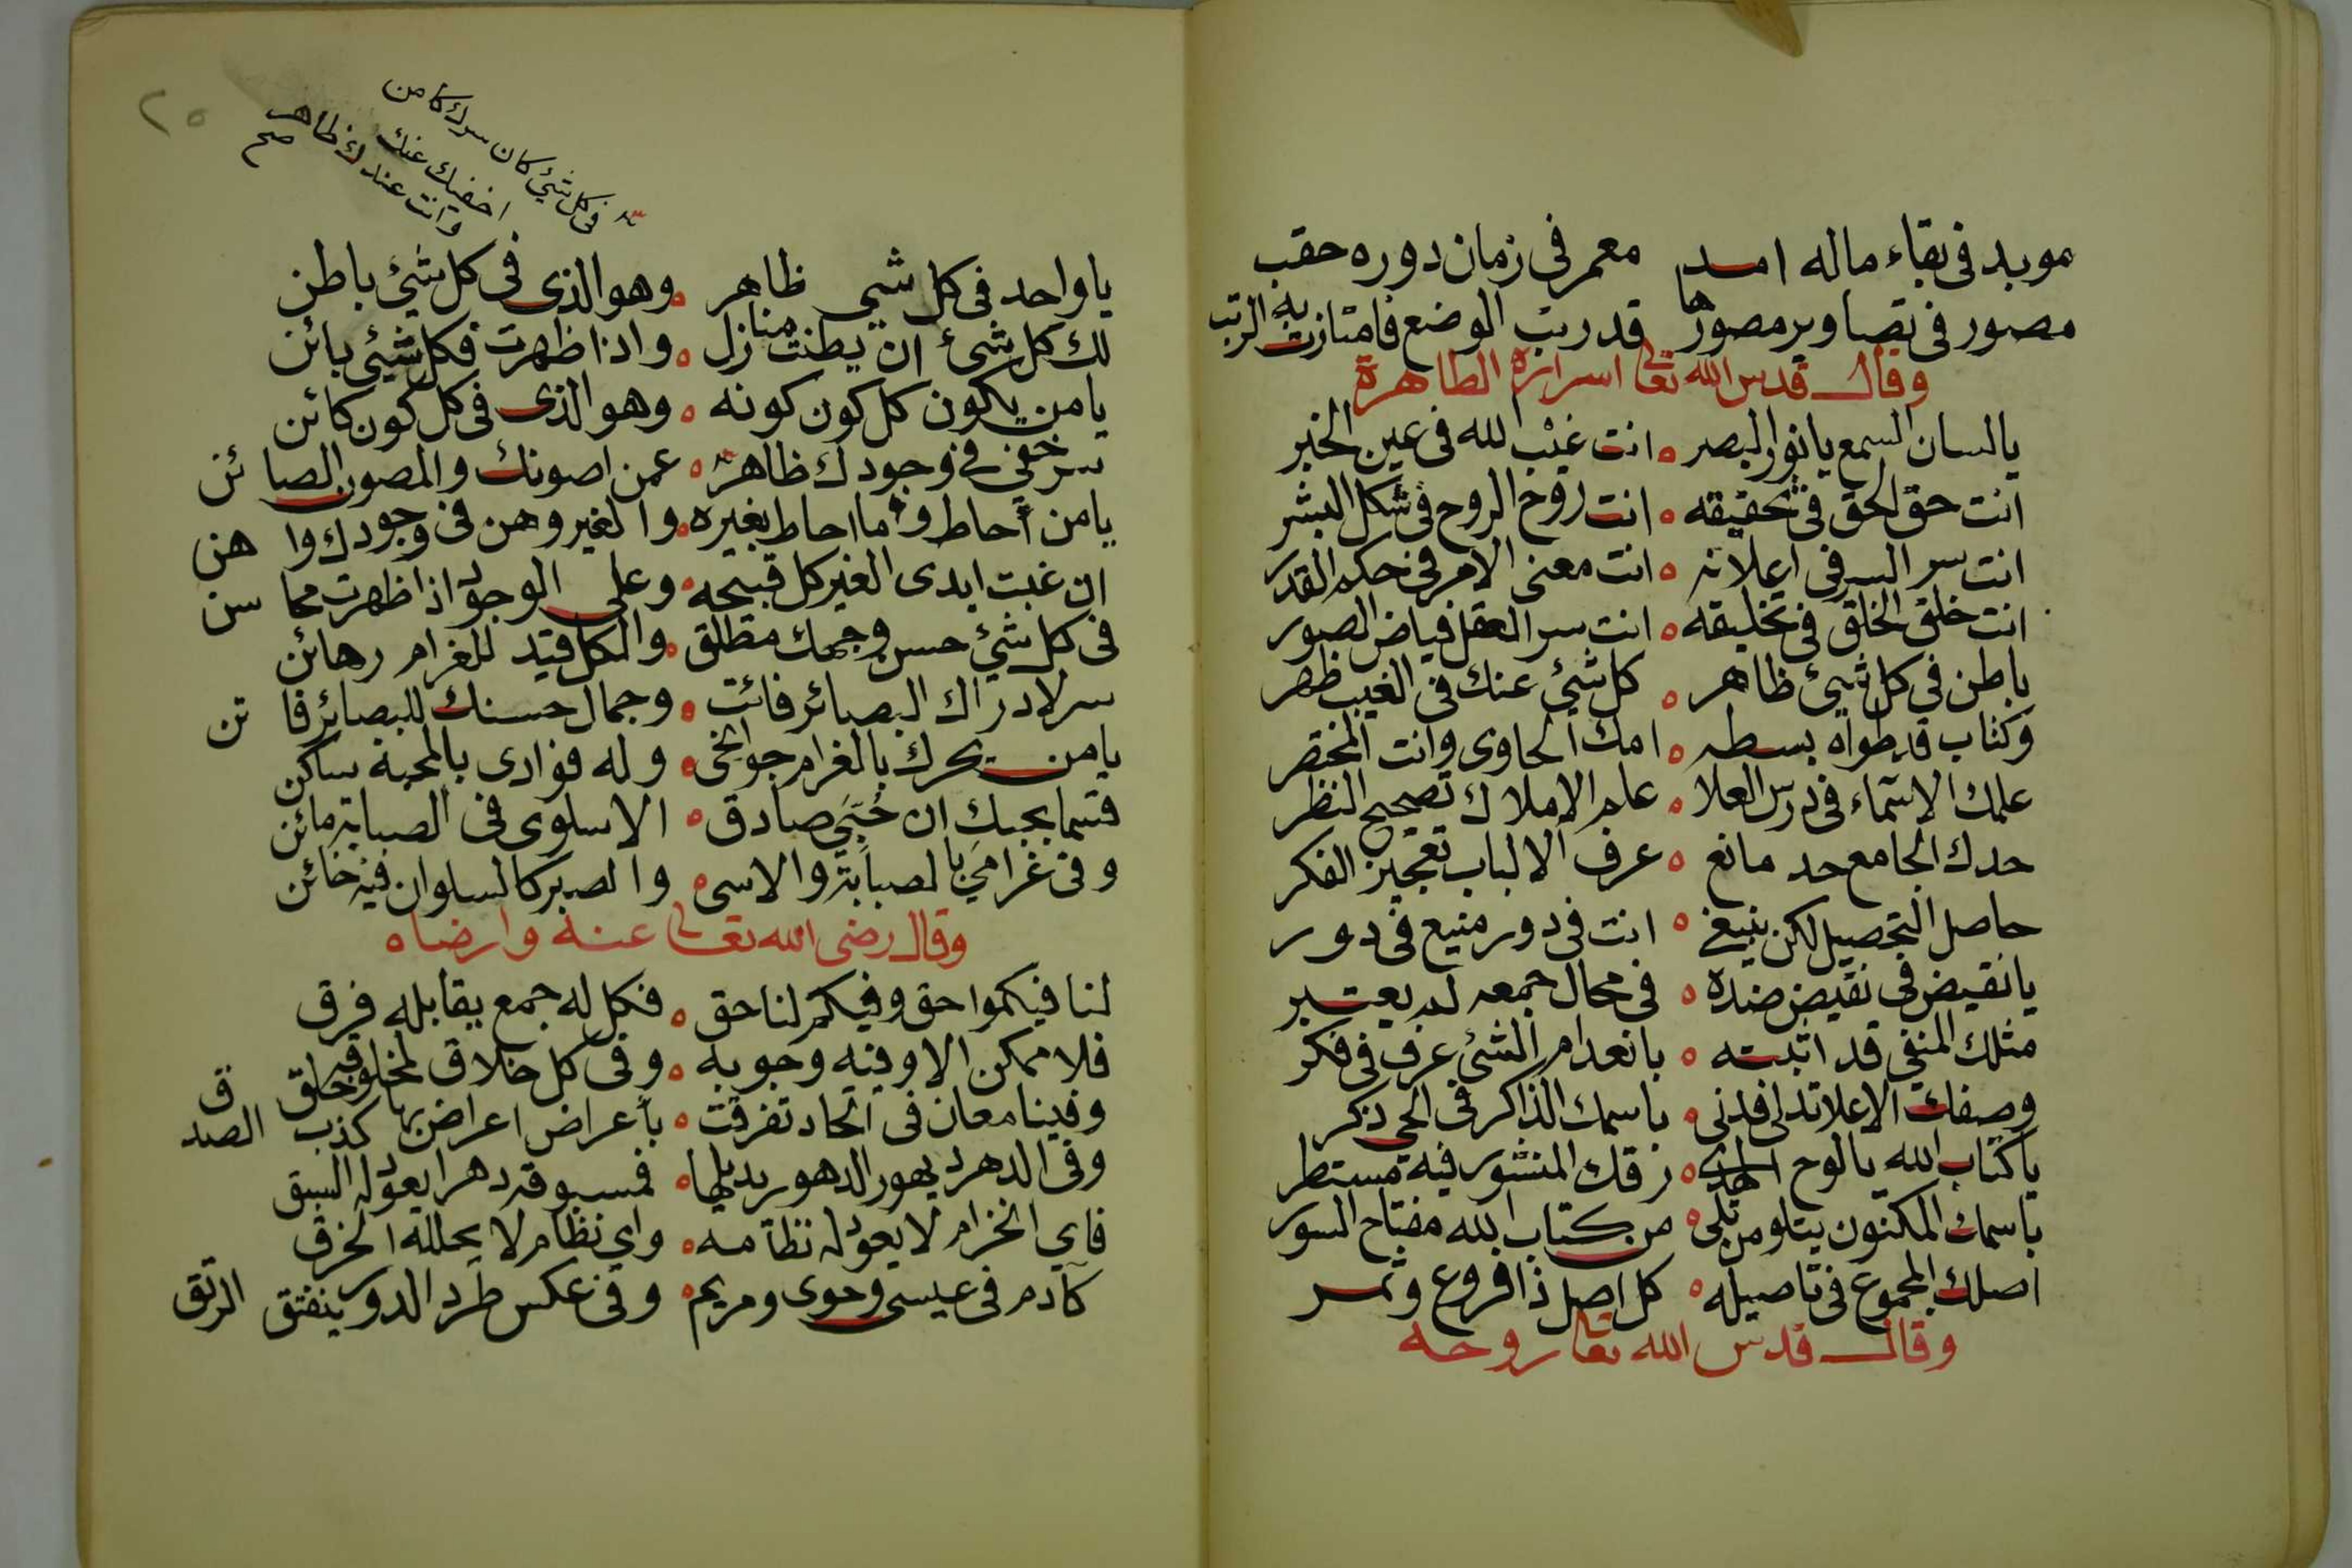 موبد في بقاء ماله امد معمر في زمان دوره حقب
مصور في تصاوير مصورها قد رتب الوضع فامتازت به الرتب
وقال قدس الله تعالى اسراره الطاهرة
يا لسان السمع يا نور البصر ه انت غيب الله في عين الخبر
انت حق الحق في تحقيقه ه انت روح الروح في شكل البشر
انت سر السر في اعلانه ه انت معنى الامر في حكم القدر
انت خلق الخلق في تخليقه ه انت سر العقل فياض الصور
باطن في كل شيئ ظاهر ه كل شيئ عنك في الغيب ظهر
وكتاب قد طواه بسطه ه امك الحاوى وانت المختصر
علمك الاسماء في درس العلا ه علم الاملاك تصحيح النظر
حدك الجامع حد مانع ه عرف الالباب تعجيز الفكر
حاصل التحصيل لكن ينبغي ه انت في دور منيع في دور
يا نقيض في نقيض ضده ه في محال جمعه لم يعتبر
مثلك المنفي قد اثبته ه بانعدام الشئ عرف في فكر
وصفك الاعلا تدلى فدنى ه باسمك الذاكر في الحي ذكر
يا كتاب الله يا لوح الهدى ه رقك المنشور فيه مستطر
باسمك المكنون يتلو من تلى ه من كتاب الله مفتاح السور
اصلك المجموع في تاصيله ه كل اصل ذا فروع وثمر
وقال قدس الله تعا روحه
٢٥
في كل شيئ كان سرك كامن
اخفيك عنك
وانت عندك ظاهر
صح
يا واحد في كل شيى ظاهر ه وهو الذى في كل شيئ باطن
لك كل شيئ ان بطنت منازل ه واذا ظهرت فكل شيئ بائن
يا من يكون كل كون كونه ه وهو الذى في كل كون كائن
سر خفي في وجودك ظاهر ه عمن اصونك والمصون الصائن
يا من احاط وما احاط بغيره ه والغير وهن في وجودك واهن
ان غبت ابدى الغير كل قبيحه ه وعلى الوجود اذا ظهرت محاسن
في كل شيئ حسن وجهك مطلق ه والكل قيد للغرام رهائن
سر لادراك البصائر فائت ه وجمال حسنك للبصائر فاتن
يا من يحرك بالغرام جوانحى ه وله فوادى بالمحبة ساكن
قسما بحبك ان حبي صادق ه الاسلوى في الصبابة مائن
وفي غرامي بالصبابة والاسى ه والصبر كالسلوان فيه خائن
وقال رضى الله تعالى عنه وارضاه
لنا فيكموا حق وفيكم لنا حق ه فكل له جمع يقابله فرق
فلا ممكن الا وفيه وجوبه ه وفي كل خلاق لمخلوقه خلق
وفينا معان في اتحاد تفرقت ه باعراض اعراض بها كذب الصدق
وفي الدهر ديهور الدهور يديلها ه فمسبوقه دهرا يعود له السبق
فاي انخرام لا يعود له نظامه ه واي نظام لا يحلله الخرق
كآدم في عيسى وحوى ومريم ه وفي عكس طرد الدور ينفتق الرتق